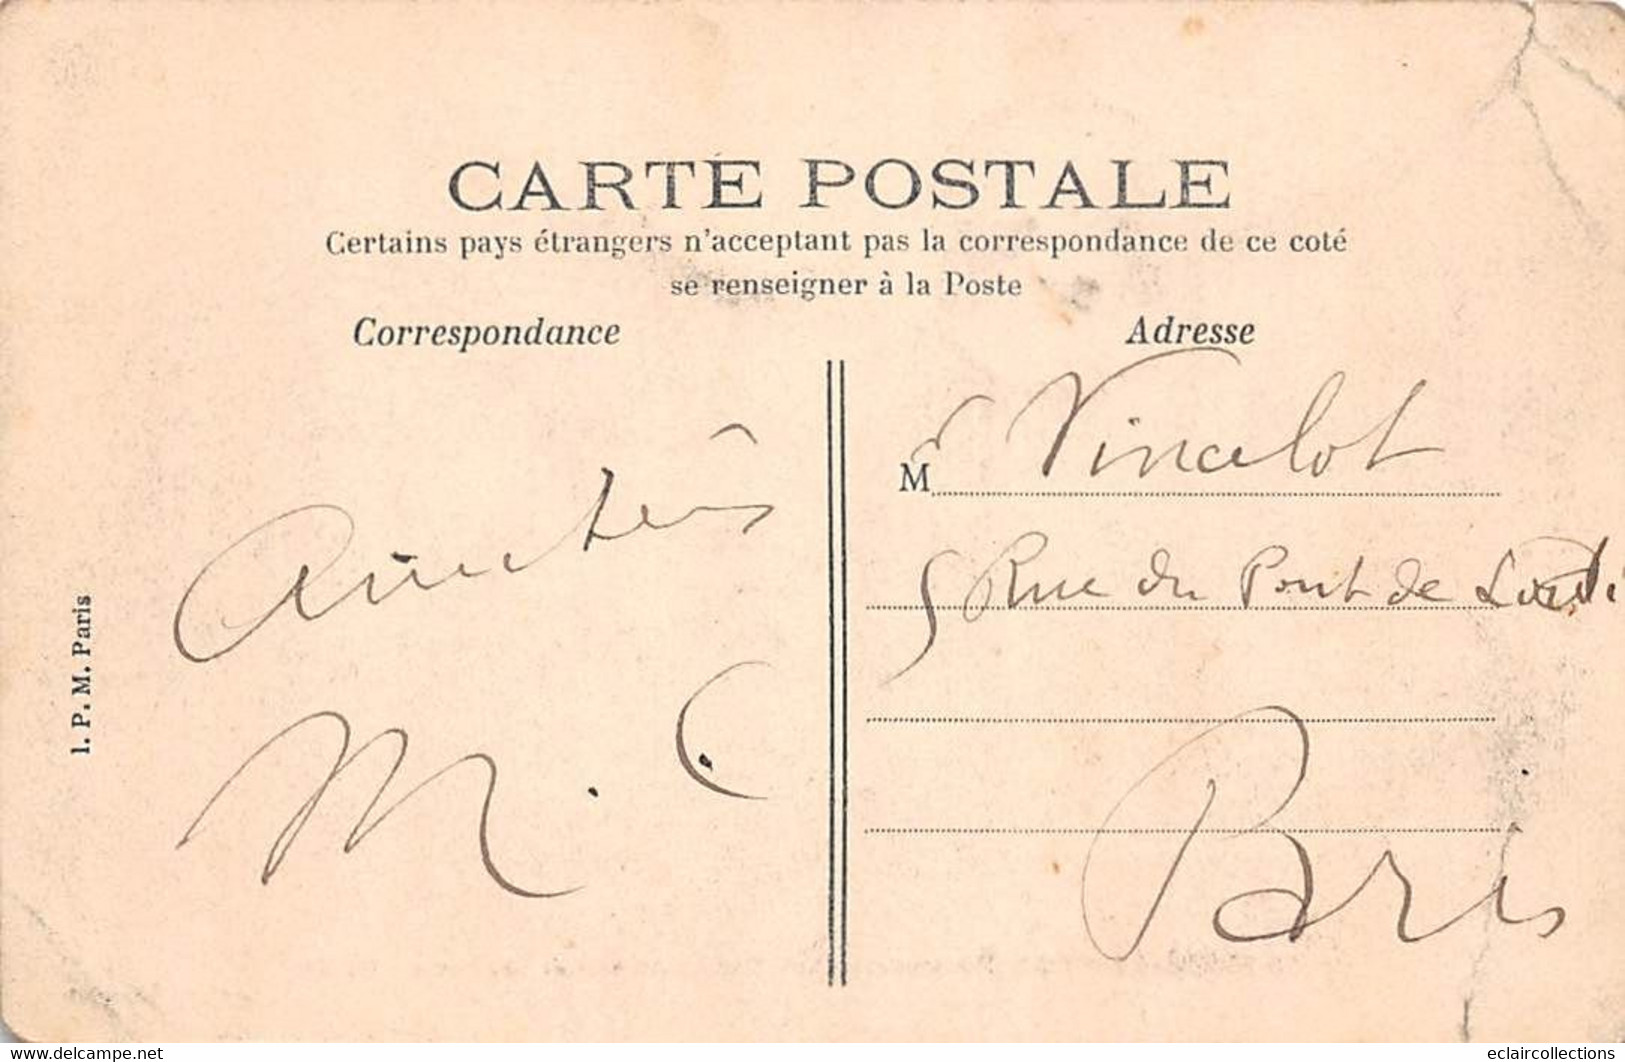 CARTE POSTALE
Certains pays étrangers n'acceptant pas la correspondance de ce coté
se renseigner à la Poste
Correspondance
Adresse
Amitiés
M. C.
M Vincelot
5 Rue du Pont de Lodi
Paris
I. P. M. Paris
www.delcampe.net
eclaircollections